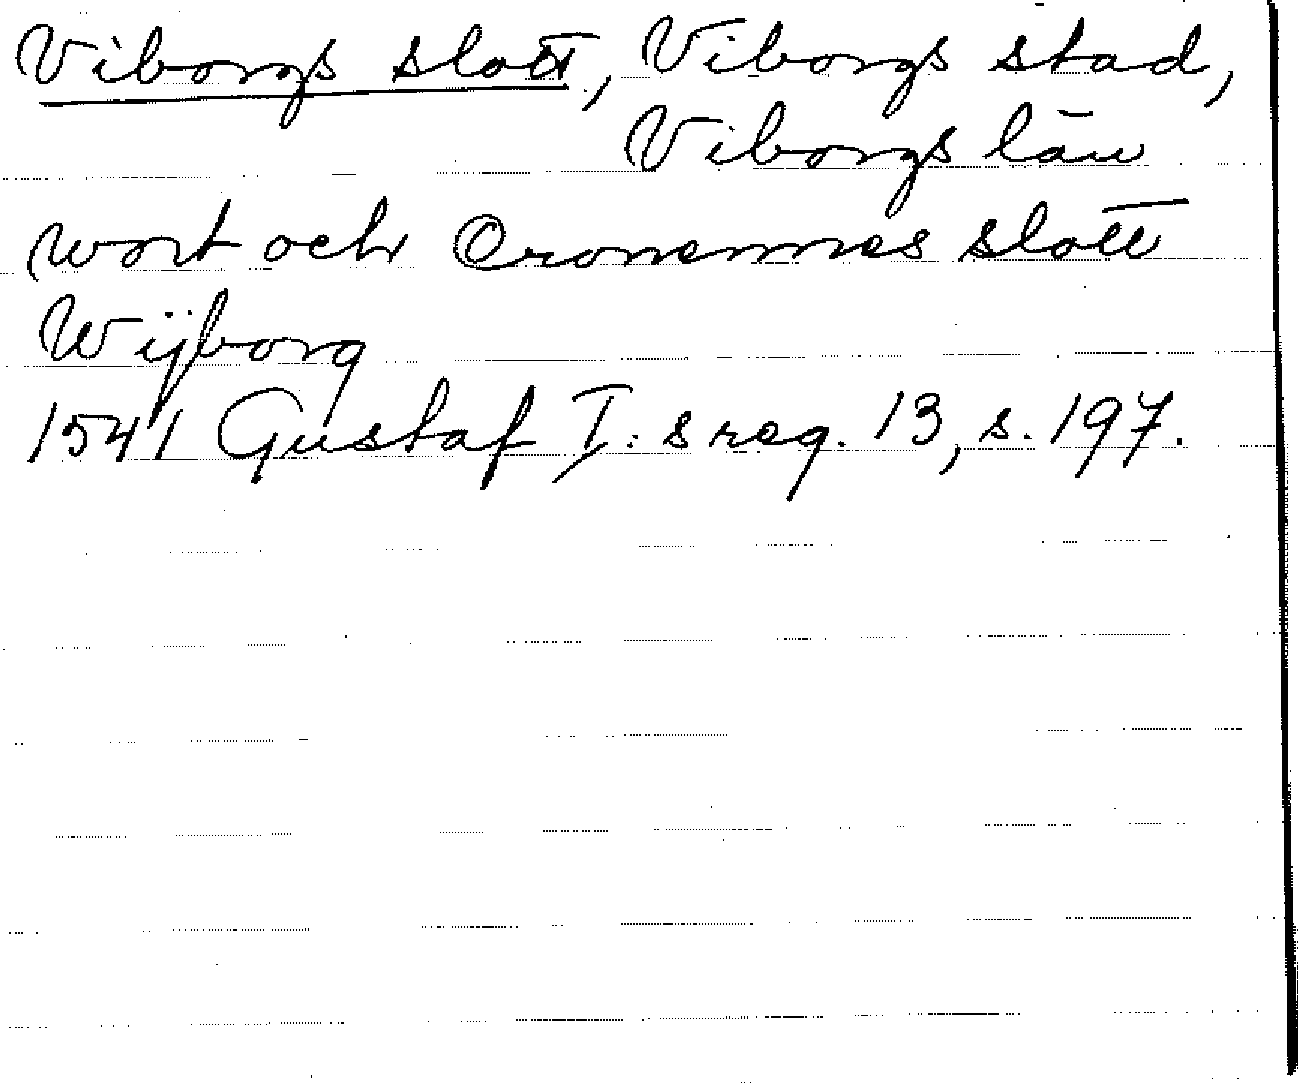 Viborgs slott, Viborgs stad,
Viborgs län
wort och Cronennes slott
Wijborg
1541 Gustaf I:s reg. 13, s. 197.